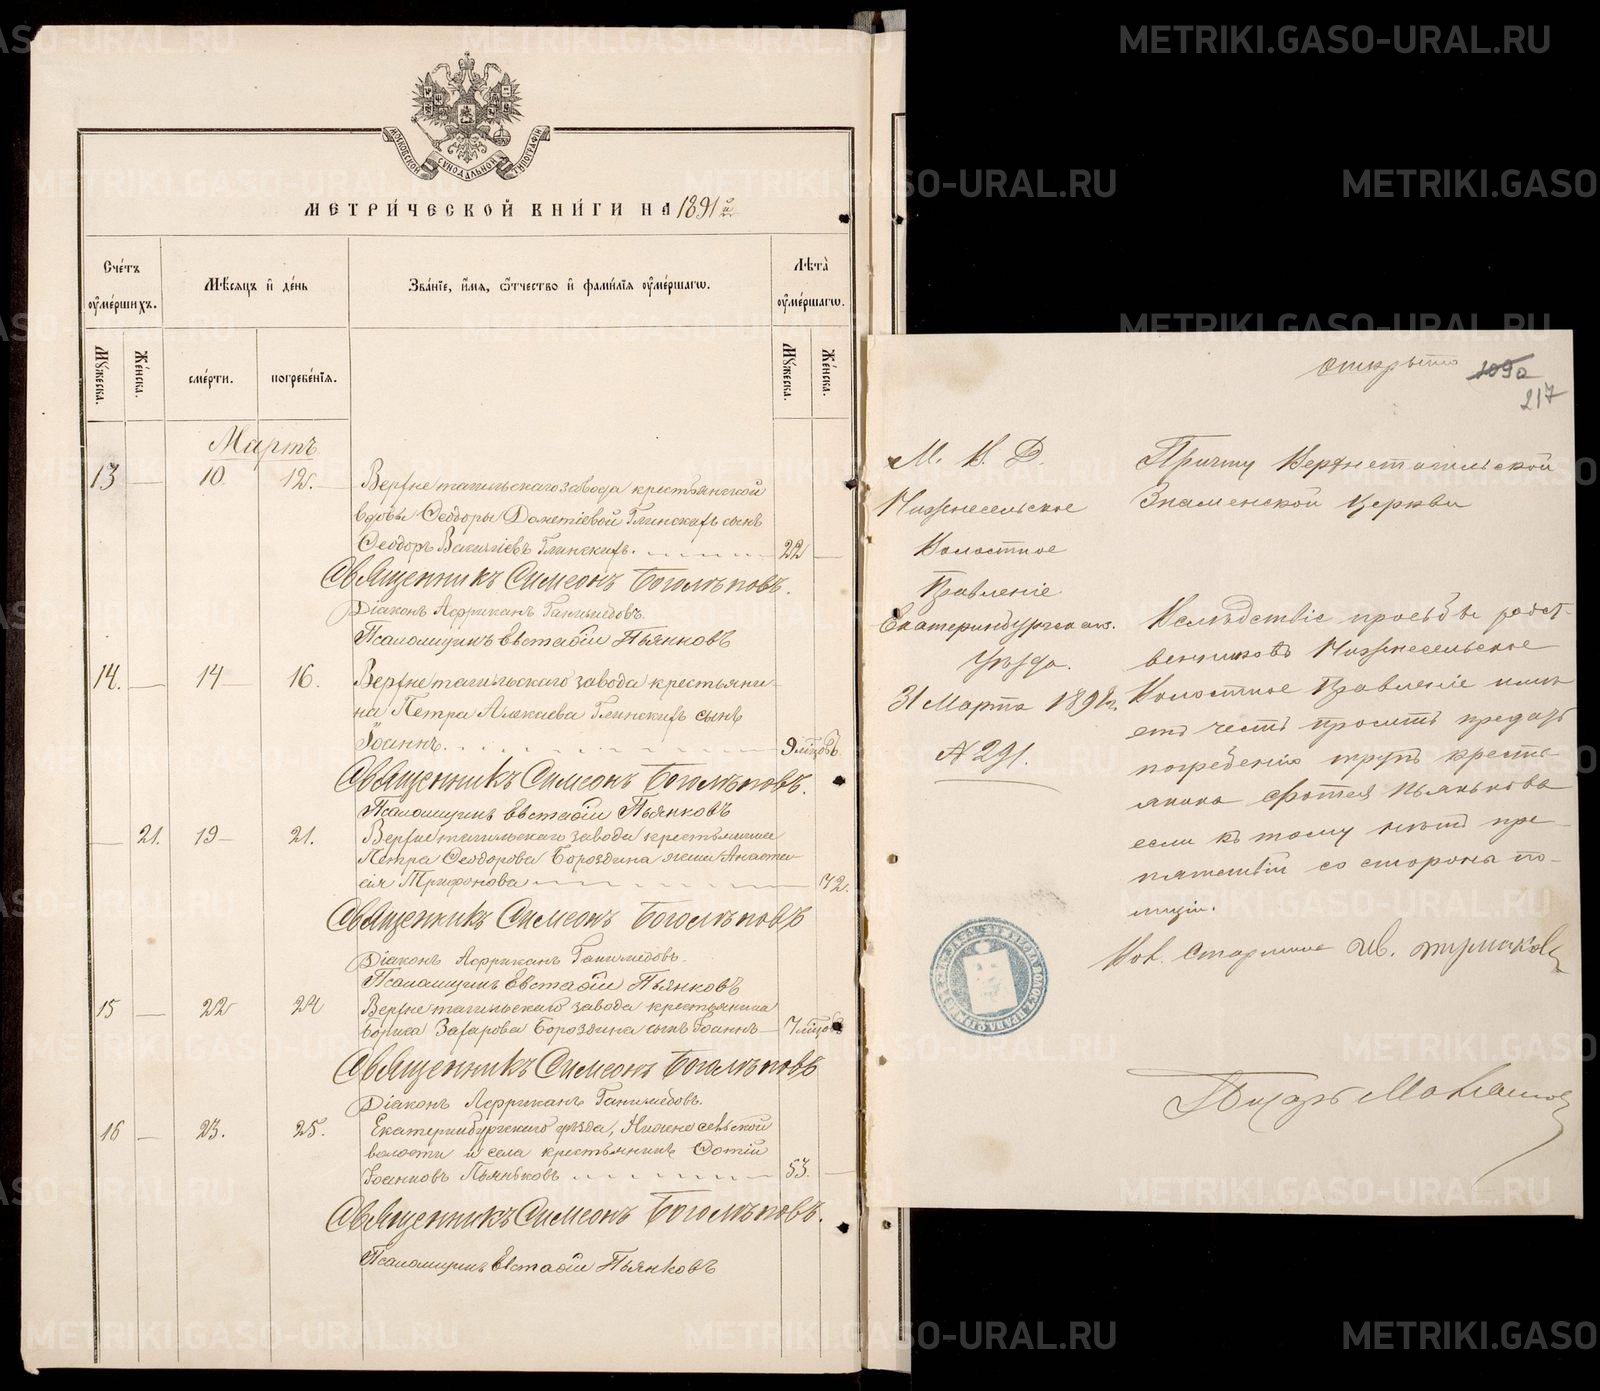 МОСКОВСКОЙ СѴНОДАЛЬНОЙ ТИПОГРАФІИ
МЕТРИ́ЧЕСКОЙ КНИ́ГИ НА 1891 й
Сче́тъ ᲂу҆ме́ршихъ.
Мѣ́сяцъ и҆ де́нь
Зва́нїе, и҆́мя, ѻ҆́тчество и҆ фами́лїя ᲂу҆ме́ршагѡ.
Лѣ́та ᲂу҆ме́ршагѡ.
Мꙋ́жеска.
Же́нска.
сме́рти.
погребе́нїя.
Мꙋ́жеска.
Же́нска.
Мартъ
13 10 12. Верхнетагильскаго завода крестьянской
вдовы Ѳеодоры Глинскихъ сынъ
Ѳеодоръ Глинскихъ. 22
Священникъ Симеонъ Боголѣповъ.
Діаконъ Африканъ Ганимедовъ.
Псаломщикъ Евстафій Пьянковъ
14. 14 16. Верхнетагильскаго завода крестьяни-
на Петра Глинскихъ сынъ
Іоаннъ. 9 мѣсцовъ
Священникъ Симеонъ Боголѣповъ.
Псаломщикъ Евстафій Пьянковъ
21. 19 21. Верхнетагильскаго завода крестьянина
Петра Ѳеодорова Бороздина жена Анаста-
сія Трифонова 72.
Священникъ Симеонъ Боголѣповъ
Діаконъ Африканъ Ганимедовъ.
Псаломщикъ Евстафій Пьянковъ
15 22 24 Верхнетагильскаго завода крестьянина
Захарова Бороздина сынъ Іоаннъ 7 мѣсцовъ
Священникъ Симеонъ Боголѣповъ
Діаконъ Африканъ Ганимедовъ.
16 23. 25. Екатеринбургскаго уѣзда, Нижнесельской
волости и села крестьянинъ Фотій
Іоанновъ Пьянковъ 53.
Священникъ Симеонъ Боголѣповъ.
Псаломщикъ Евстафій Пьянковъ
открыто 209а
217
М. В. Д.
Нижнесельское
Волостное
Правленіе
Екатеринбургскаго.
Уѣзда.
31 Марта 1891 г.
№ 291.
Причту Верхнетагильской
Знаменской Церкви
Вслѣдствіе просьбы родст-
венниковъ Нижнесельское
Волостное Правленіе имѣ-
етъ честь просить предать
погребенію трупъ кресть-
янина Фотея Пьянкова
если къ тому нѣтъ пре-
пятствій со стороны по-
лиціи.
Вол. Старшина Ив.
Писарь
METRIKI.GASO-URAL.RU